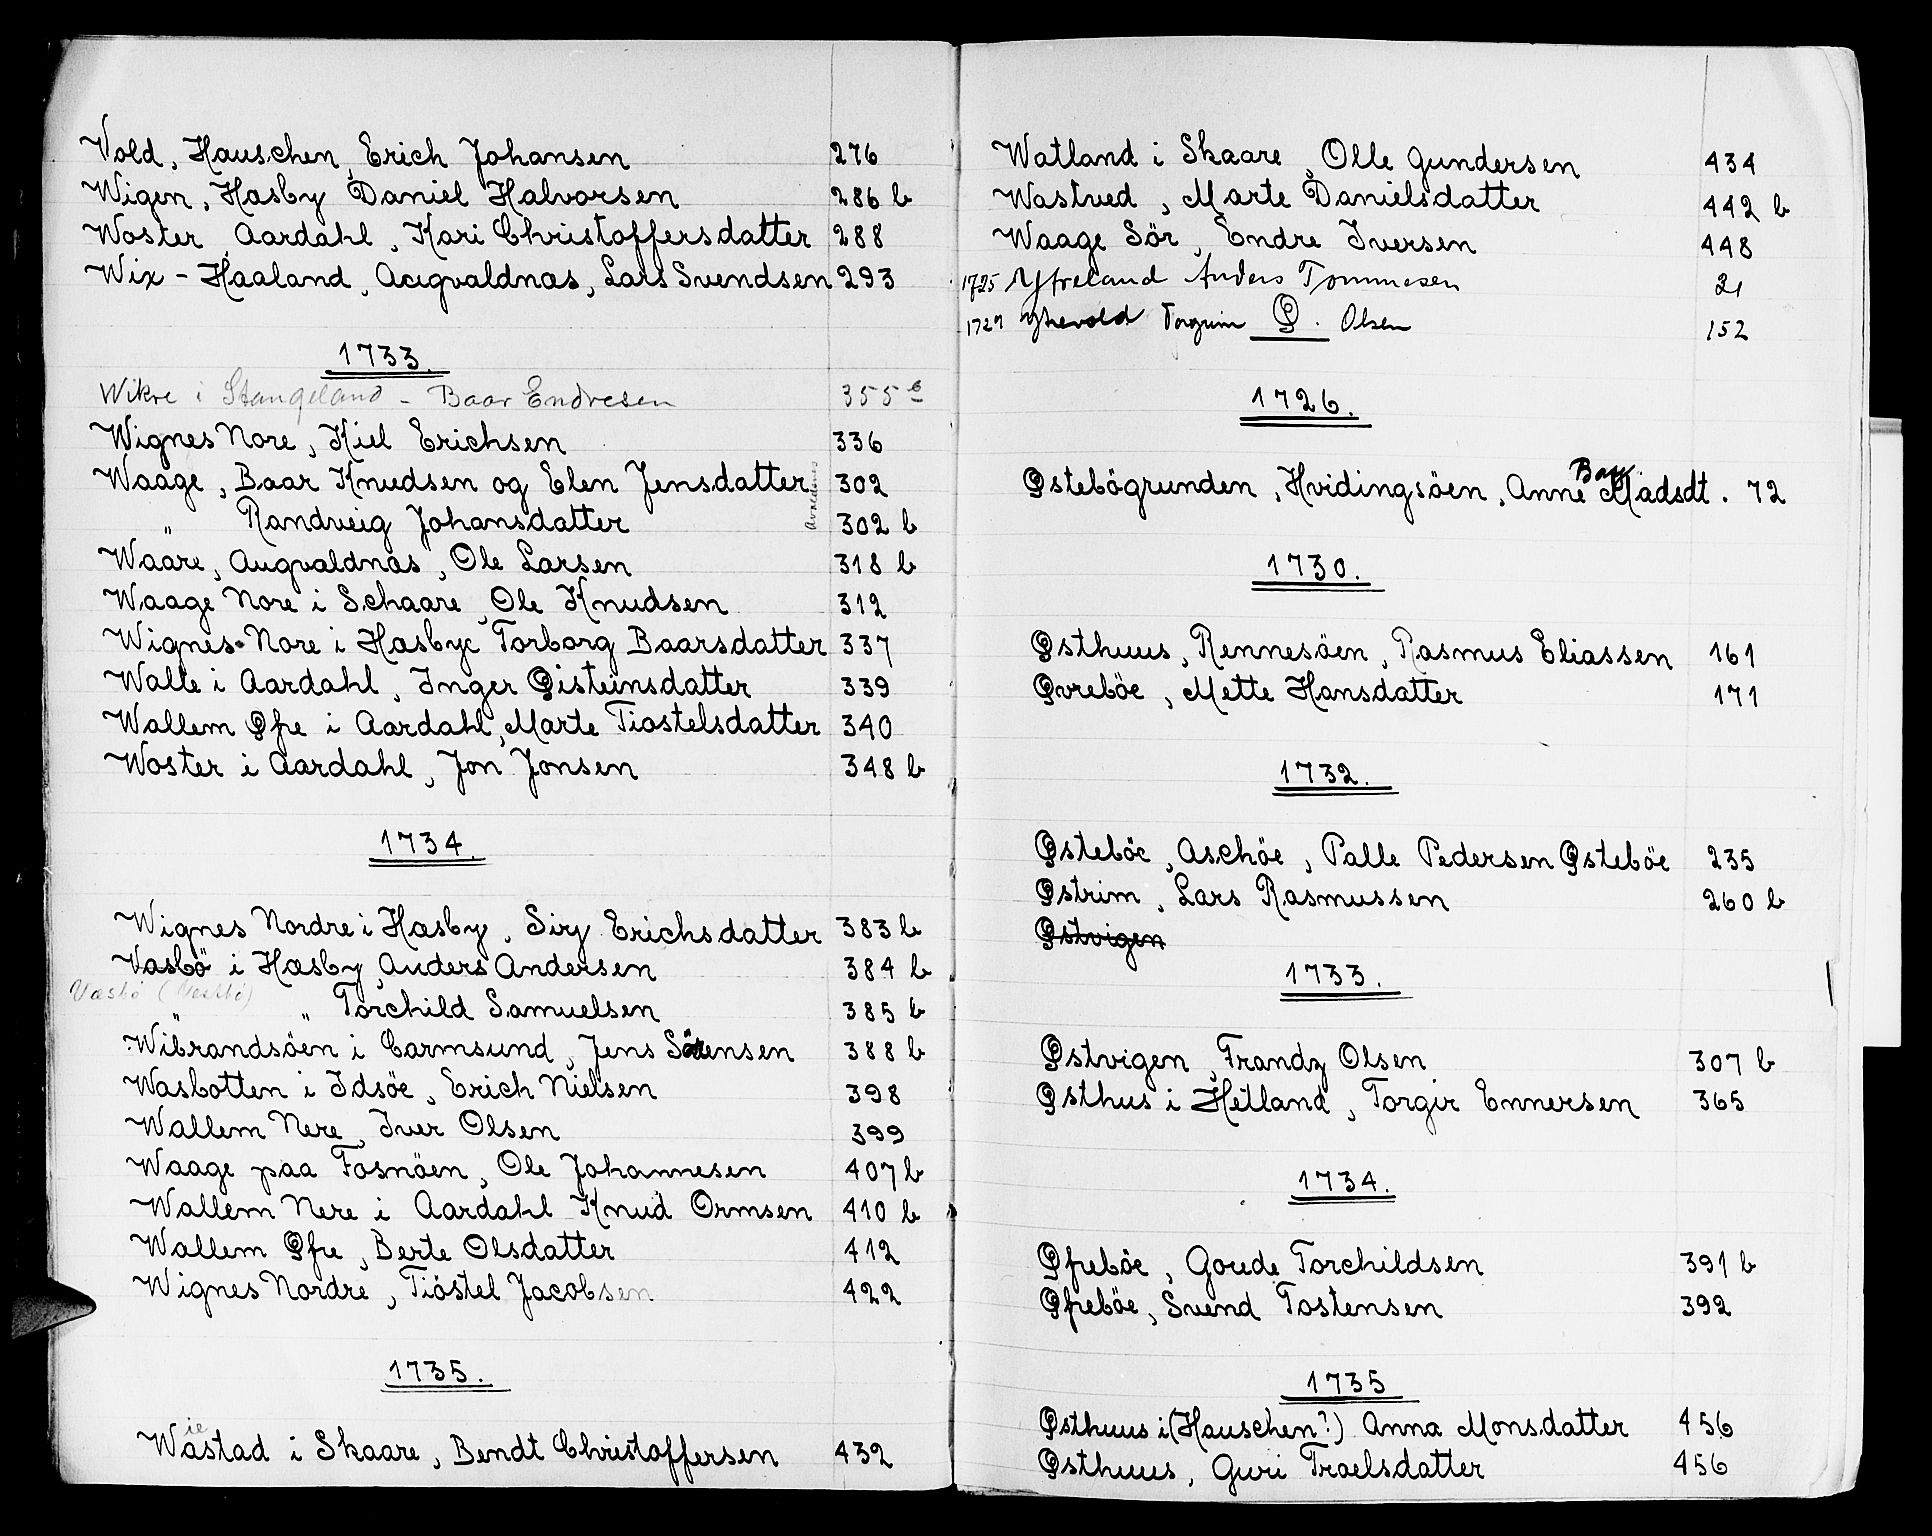 Vold, Hauschen, Erich Johansen 276
Wigen, Hasby Daniel Halvorsen 286 b
Woster, Aardahl, Kari Christoffersdatter 288
Wix - Haaland, Augvaldnæs, Lars Svendsen 293
1733.
Wikre i Stangeland - Baar Endresen 355 b
Wignes Nore, Kiel Erichsen 336
Waage, Baar Knudsen og Elen Jensdatter 302
" Randveig Johansdatter 302 b
Waare, Augvaldnas, Ole Larsen 318 b
Waage Nore i Schaare, Ole Knudsen 312
Wignes Nore i Hasbye Torborg Baarsdatter 337
Walle i Aardahl, Inger Øisteinsdatter 339
Wallem Øfre i Aardahl, Marte Tiostelsdatter 340
Woster i Aardahl, Jon Jonsen 348 b
1734.
Wignes Nordre i Hæsby, Siry Erichsdatter 383 b
Vasbö i Hæsby, Anders Andersen 384 b
Væsbö
" " Torchild Samuelsen 385 b
Wibrandsöen i Carmsund, Jens Sörensen 388 b
Wasbotten i Idsöe, Erich Nielsen 398
Wallem Nere, Iver Olsen 399
Waage paa Fosnöen, Ole Johannesen 407 b
Wallem Nere i Aardahl Knud Ormsen 410 b
Wallem Øfre, Berte Olsdatter 412
Wignes Nordre, Tiöstel Jacobsen 422
1735.
ie
Wastad i Skaare, Bendt Christoffersen 432
Watland i Skaare, Olle Gundersen 434
Wastved, Marte Danielsdatter 442 b
Waage Sör, Endre Iversen 448
1725 Yfreland Anders Tommesen 21
1727 Torgrim Ø. Olsen 152
1726.
Østebögrunden, Hvidingsöen, Anne Madsdt. 72
1730.
Østhuus, Rennesöen, Rasmus Eliassen 161
Øvreböe, Mette Hansdatter 171
1732.
Østeböe, Aschöe, Palle Pedersen Østeböe 235
Østrim, Lars Rasmussen 260 b
Østvigen
1733.
Østvigen, Frandz Olsen 307 b
Østhus i Hetland, Torgir Ennersen 365
1734.
Øfreböe, Goude Torchildsen 391 b
Øfreböe, Svend Tostensen 392
1735
Østhuus i (Hauschen?) Anna Monsdatter 456
Østhuus, Guri Traelsdatter 456